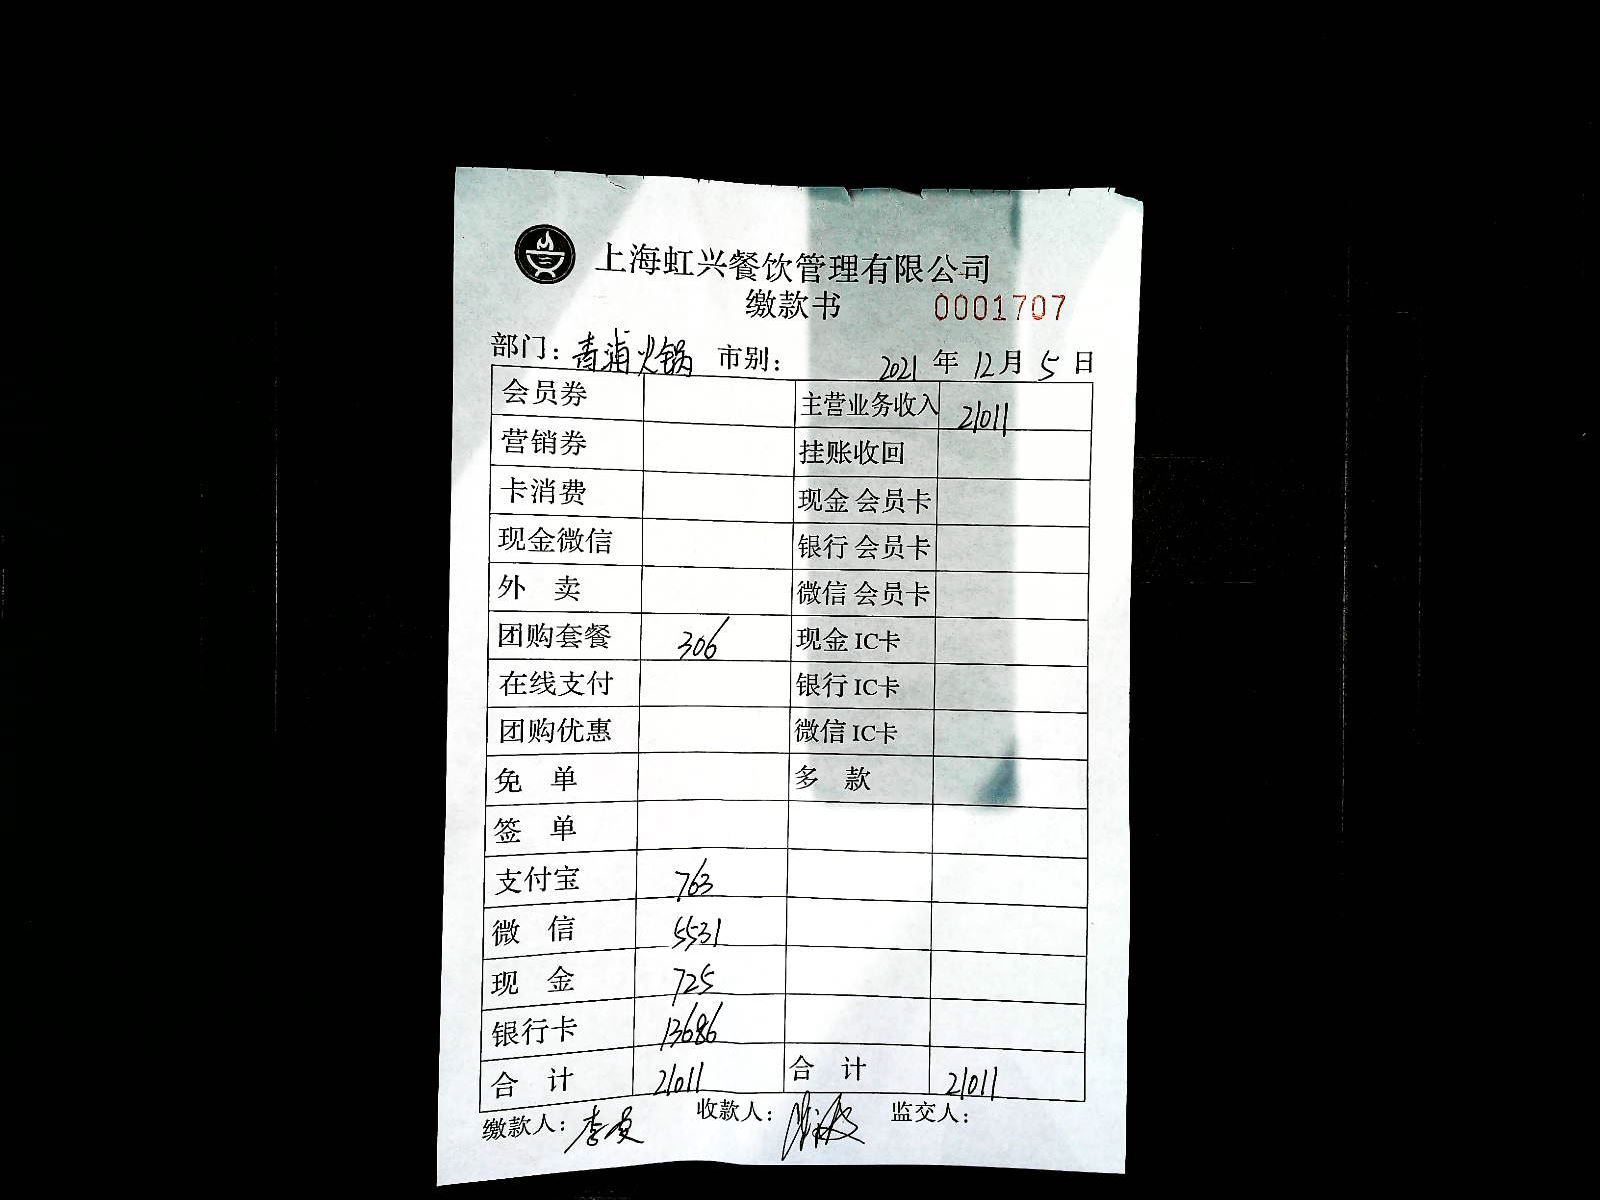 上海虹兴餐饮管理有限公司
缴款书 0001707
部门：青浦火锅 市别： 2021 年 12 月 5 日
会员券 主营业务收入 21011
营销券 挂账收回
卡消费 现金 会员卡
现金微信 银行 会员卡
外 卖 微信 会员卡
团购套餐 306 现金 IC卡
在线支付 银行 IC卡
团购优惠 微信 IC卡
免 单 多 款
签 单
支付宝 763
微 信 5531
现 金 725
银行卡 13686
合 计 21011 合 计 21011
缴款人： 收款人： 监交人：